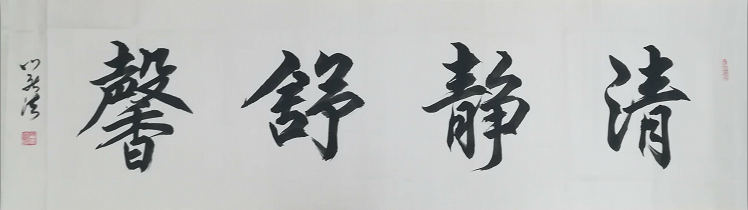 清静舒馨